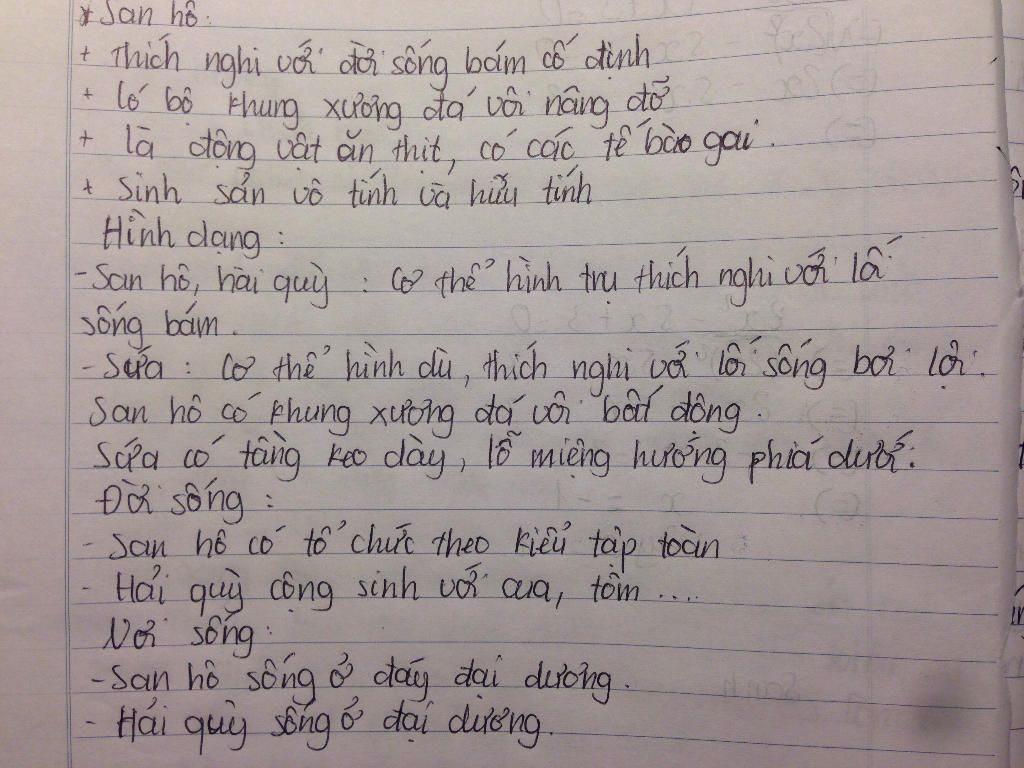 * San hô:
+ thích nghi với đời sống bám cố định
+ Có bộ khung xương đá vôi nâng đỡ
+ là động vật ăn thịt, có các tế bào gai.
+ Sinh sản vô tính và hữu tính
Hình dạng:
- San hô, hải quỳ: Cơ thể hình trụ thích nghi với lối
sống bám.
- Sứa: Cơ thể hình dù, thích nghi với lối sống bơi lội.
San hô có khung xương đá vôi bất động.
Sứa có tầng keo dày, lỗ miệng hướng phía dưới.
Đời sống:
- San hô có tổ chức theo kiểu tập toàn
- Hải quỳ cộng sinh với cua, tôm ....
Nơi sống:
- San hô sống ở đáy đại dương.
- Hải quỳ sống ở đại dương.